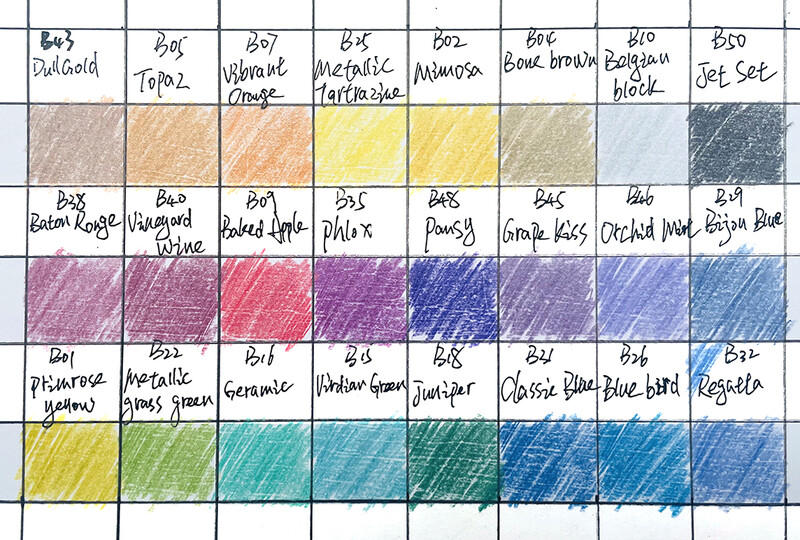 B43 B05 B07 B25 B02 B04 B10 B50
DullGold Topaz Vibrant Metallic Mimosa Bone brown Belgian Jet Set
Orange Tartrazine block
B38 B40 B09 B35 B48 B45 B46 B29
Baton Rouge Vineyard Baked Apple Phlox Pansy Grape Kiss Orchid Mist Bijou Blue
Wine
B01 B22 B16 B15 B18 B21 B26 B32
Primrose Metallic Geramic Virdian Green Juniper Classic Blue Blue bird Regatta
yellow grass green